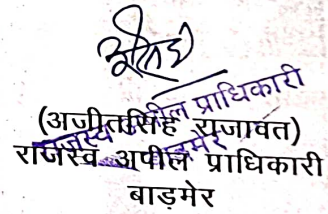 (अजीतसिंह राजावत)
राजस्व अपील प्राधिकारी
बाड़मेर
राजस्व अपील प्राधिकारी
बाड़मेर